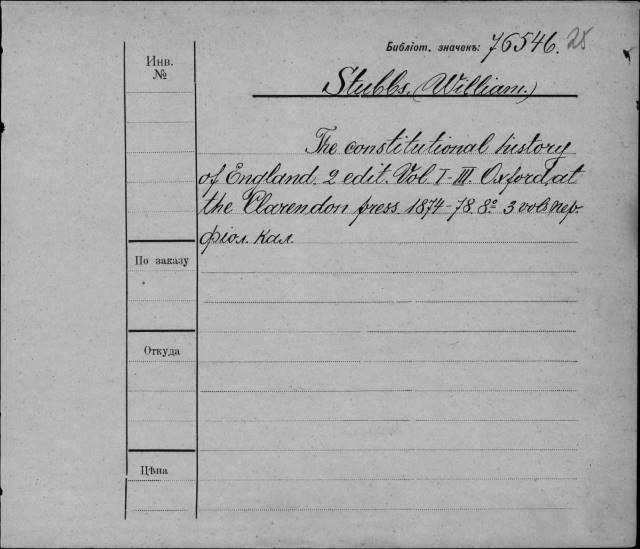 Библіот. значекъ: 76546. 28
Инв.
№
Stubbs, (William.)
The constitutional history
of England. 2 edit. Vol. I-III. Oxford, at
the Clarendon press. 1874-78. 8º 3 vols. пер.
фіол. кал.
По заказу
Откуда
Цѣна